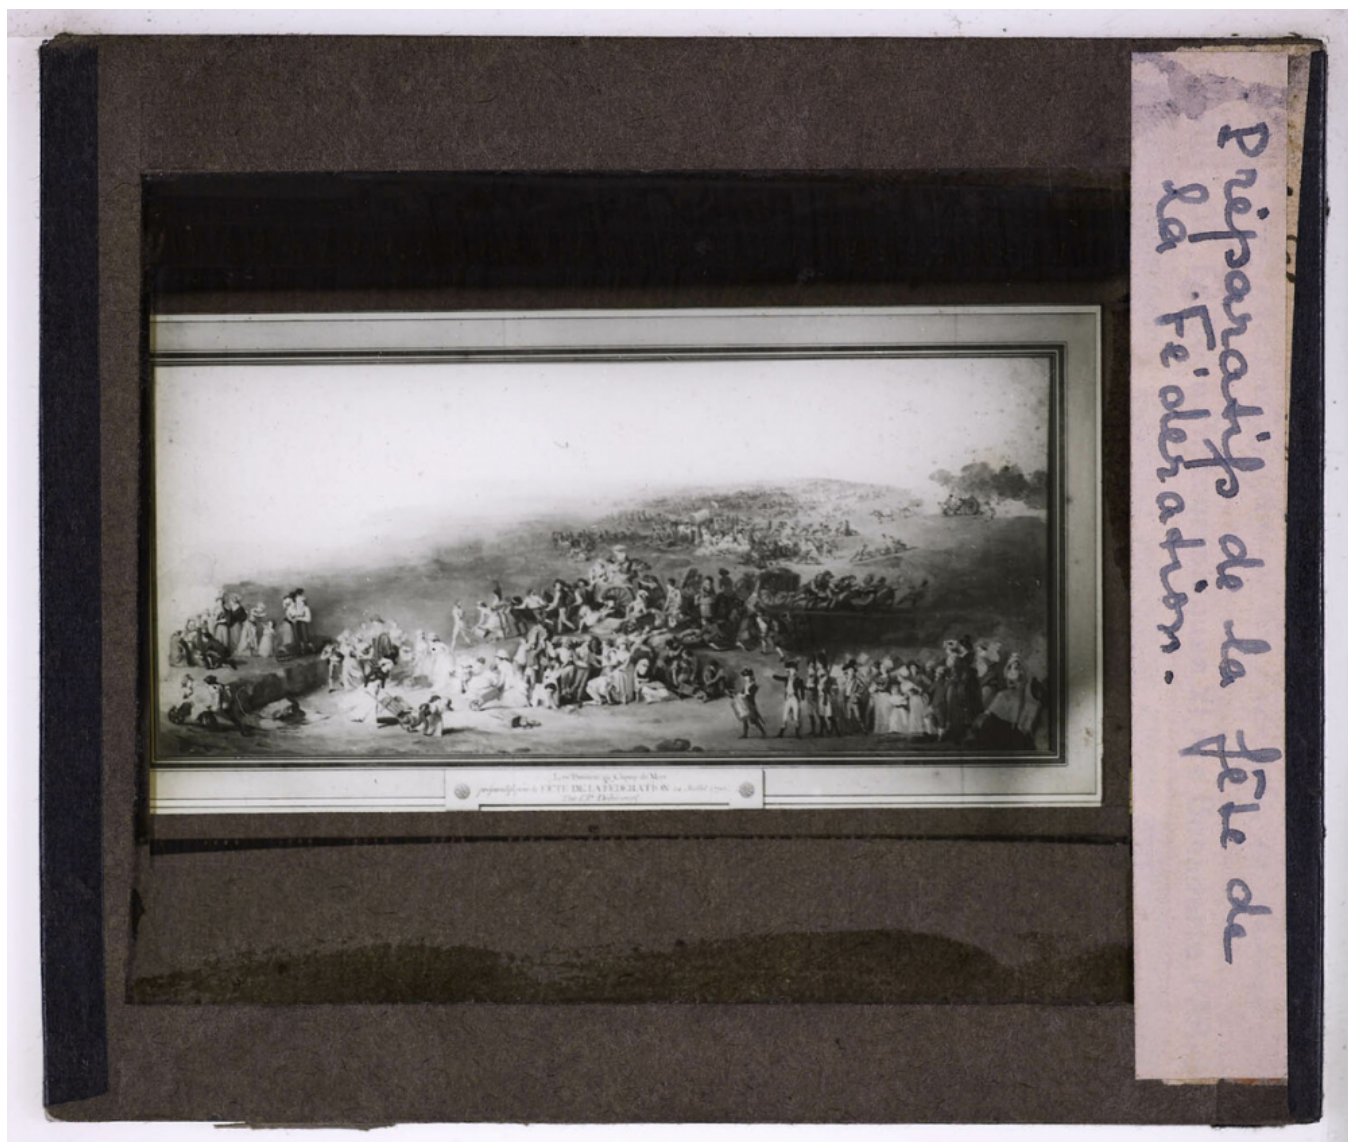 Préparatifs de la fête de
la Fédération.
Champ de Mars
FETE DE LA FEDERATION 14 Juillet 1790